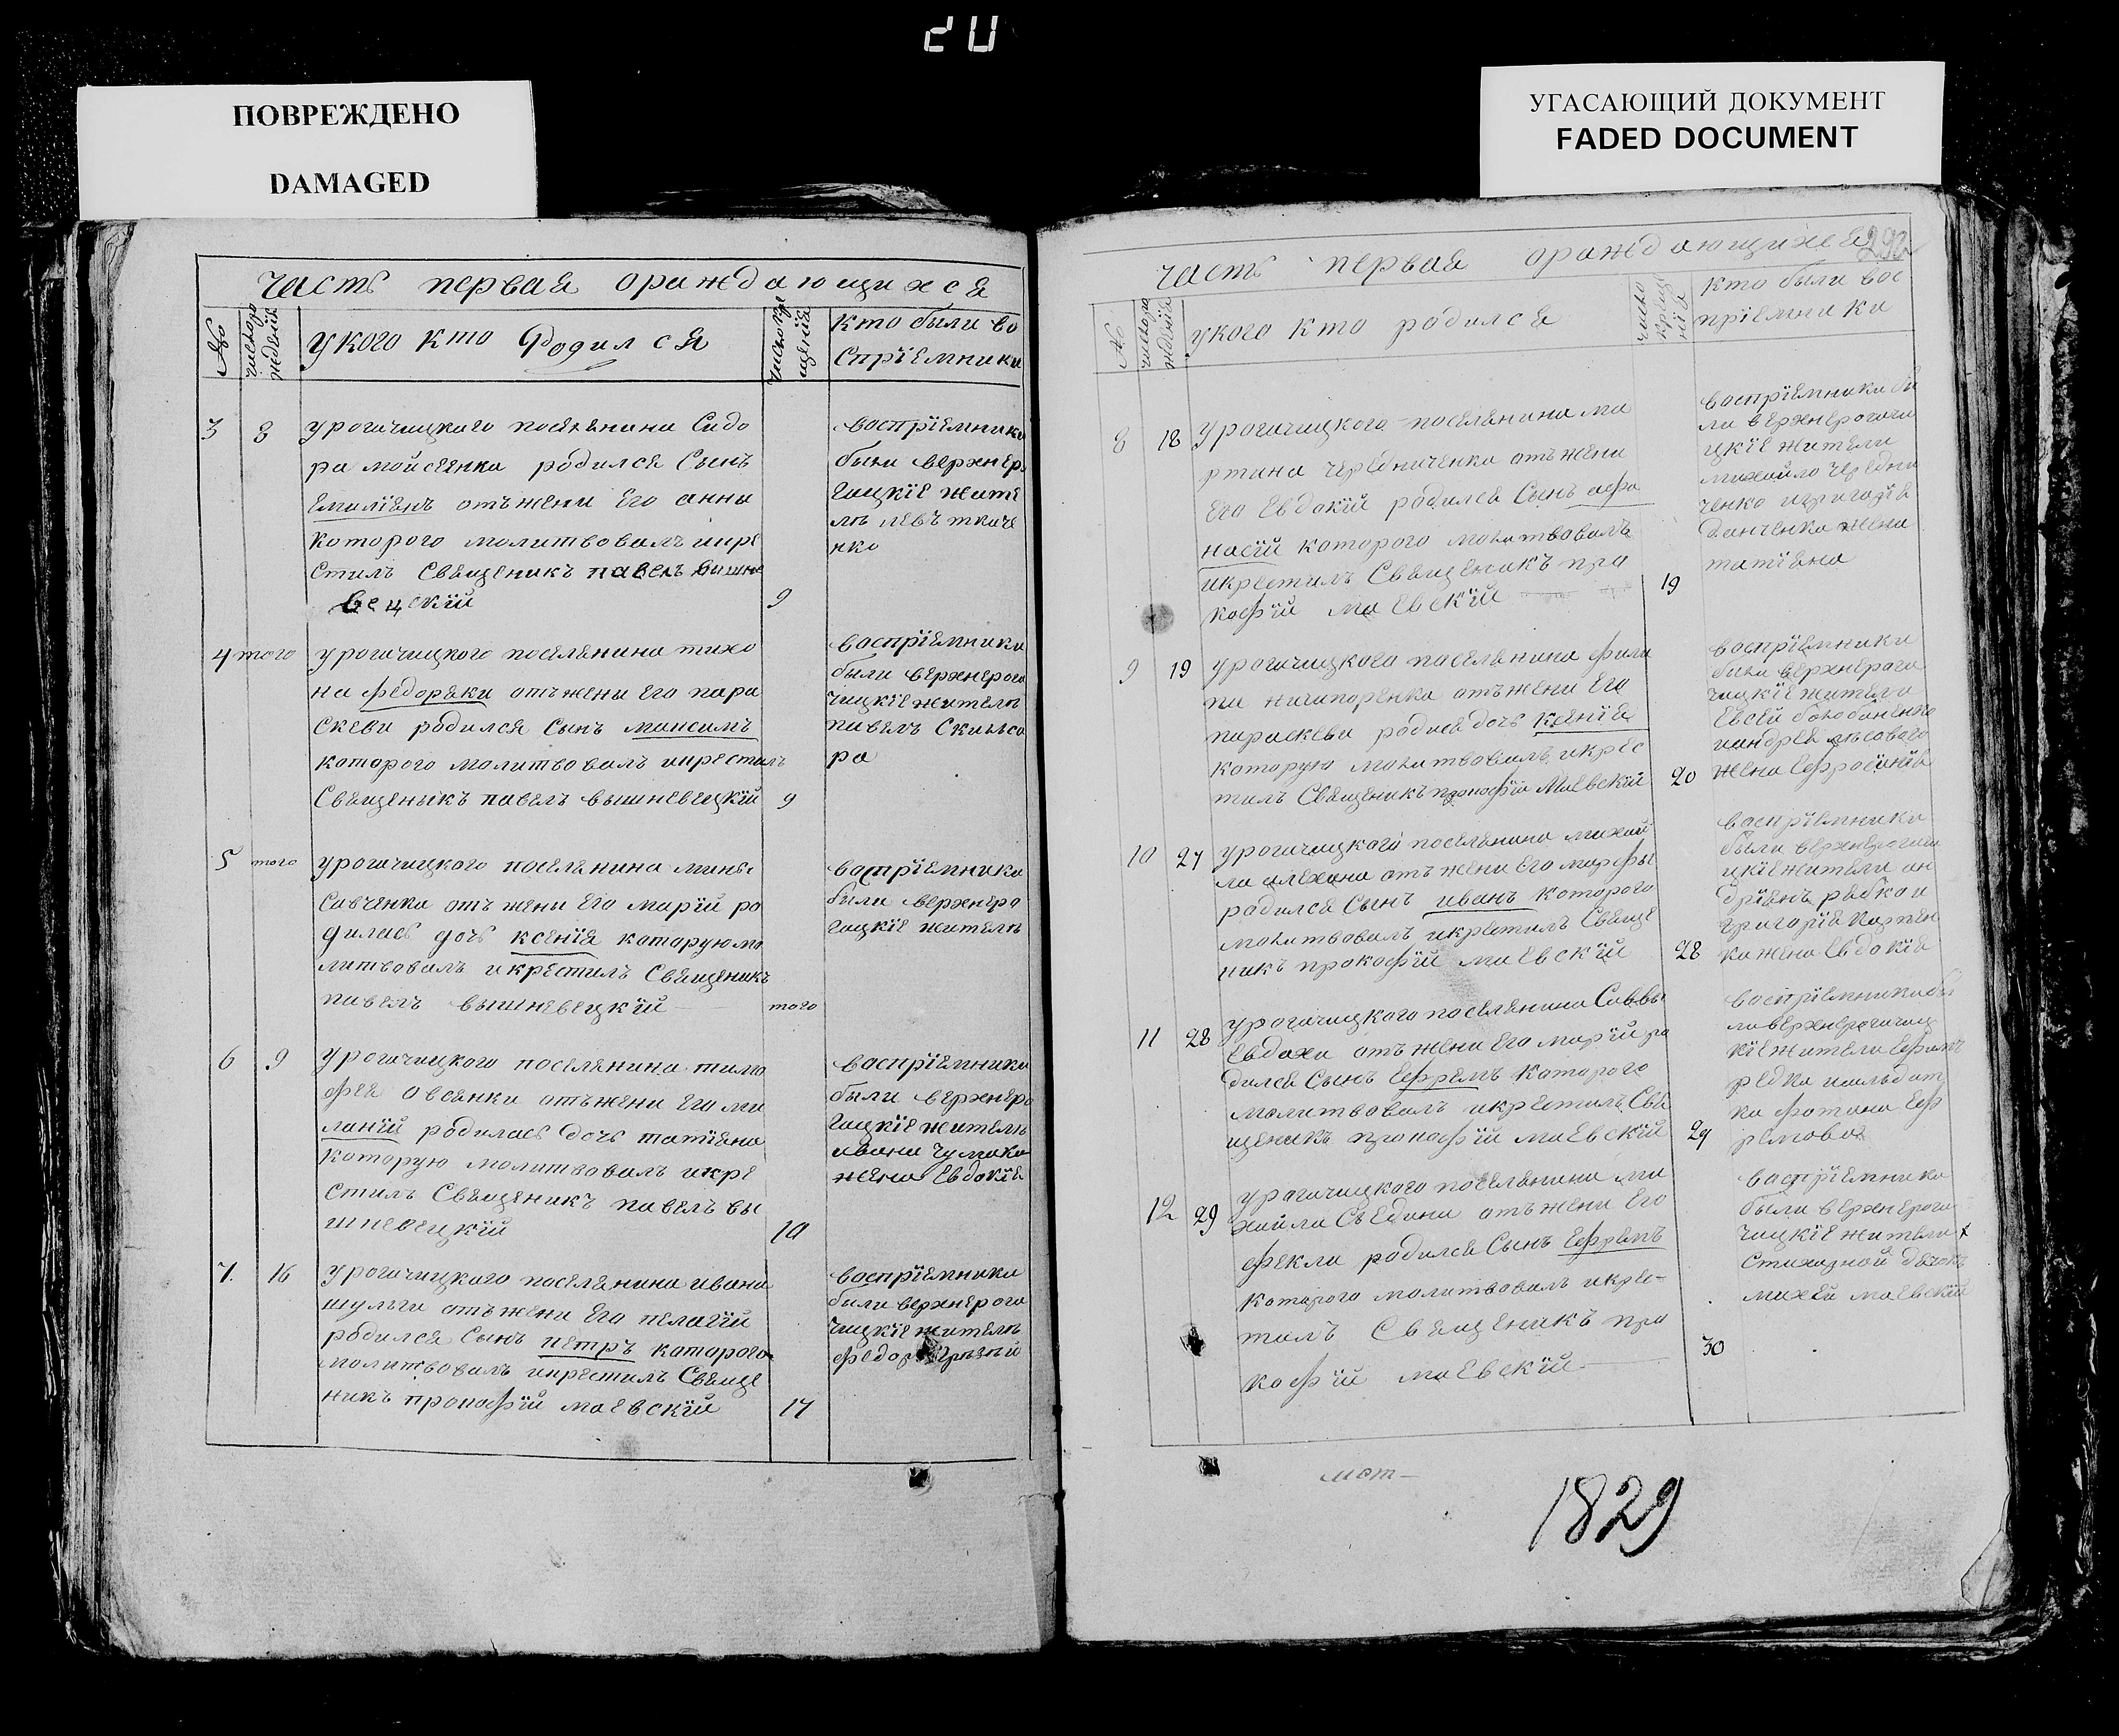 20
ПОВРЕЖДЕНО
DAMAGED
УГАСАЮЩИЙ ДОКУМЕНТ
FADED DOCUMENT
часть первая ораждающихся
№
число ро
ждения
укого кто родился
число кре
щения
кто были во
спрїемники
3 8 урогачицкого поселянина Сидо
ра мойсеенка родился Сынъ
Емилїянъ отъ жени Его анны
которого молитвовалъ икре
стилъ Священикъ павелъ вишне
вецкїй 9
воспрїемники
были верхнеро
гацкїе жите
лѣ левъ ткаче
нко
4 того урогачицкого поселянина тихо
на федоряки отъ жени Его пара
скеви родился Сынъ максимъ
которого молитвовалъ икрестилъ
Священыкъ павелъ вышневецкїй 9
воспрїемники
были верхнерога
чицкїе жителѣ
павелъ Скляса
ра
5 того урогачицкого поселянина мины
Савченка отъ жени Его марїй ро
дилась дочь ксенїя которую мо
литвовалъ икрестилъ Священикъ
павелъ вышневецкїй того
воспрїемники
были верхнеро
гацкїе жителѣ
6 9 урогачицкого поселянина тимо
фея овсянки отъ жени Его ма
ланїй родилась дочь татїяна
которую молитвовалъ икре
стилъ Священикъ павелъ вы
шневецкїй 10
воспрїемники
были верхнеро
гацкїе жителѣ
ивана чумака
жена Евдокїя
7. 16 урогачицкого поселянина ивана
шульги отъ жени Его пелагїй
родился Сынъ петръ которого
молитвовалъ икрестилъ Свяще
никъ прокофїй маевскїй 17
воспрїемники
были верхнерога
чицкїе жителѣ
федор
часть первая ораждающихся
292
№
число ро
ждения
укого кто родился
число
креще
нїя
кто были вос
прїемники
8 18 урогачицкого поселянина ма
ртина чередниченка отъ жени
Его Евдокїй родился Сынъ афа
насїй которого молитвовалъ
икрестилъ Священикъ про
кофїй маевскїй 19
воспрїемники бы
ли верхнерогачи
цкїе жители
михайло чередни
ченко игригорїя
данченка жена
татїяна
9 19 урогачицкого поселянина фили
па ничипоренка отъ жени Его
параскеви родилась дочь ксенїя
которую молитвовалъ икрес
тилъ Священикъ прокофїй маевскїй 20
воспрїемники
были верхнерога
чицкїе жители
Евсей
иандрея
жена Ефросинїя
10 27 урогачицкого поселянина михай
ла алехина отъ жени Его марфы
родился Сынъ иванъ которого
молитвовалъ икрестилъ Свяще
никъ прокофїй маевскїй 28
воспрїемники
были верхнерогачи
цкїе жители ан
дрїянъ рябко и
григорїя
ка жена Евдокїя
11 28 урогачицкого поселянина Саввы
Евдохи отъ жени Его марїй ро
дился Сынъ Ефремъ которого
молитвовалъ икрестилъ Свя
щеникъ прокофїй маевскїй 29
воспрїемники бы
ли верхнерогачиц
кїе жители Ефимъ
редка исолдат
ка фотина Еф
ремова
12 29 урогачицкого поселянина ми
хайла Съедина отъ жени Его
феклы родился Сынъ Ефремъ
которого молитвовалъ икре-
тилъ Священикъ про
кофїй маевскїй 30
воспрїемники
были верхнерога
чицкїе жители
Стихарной дячокъ
михей маевскїй
1829